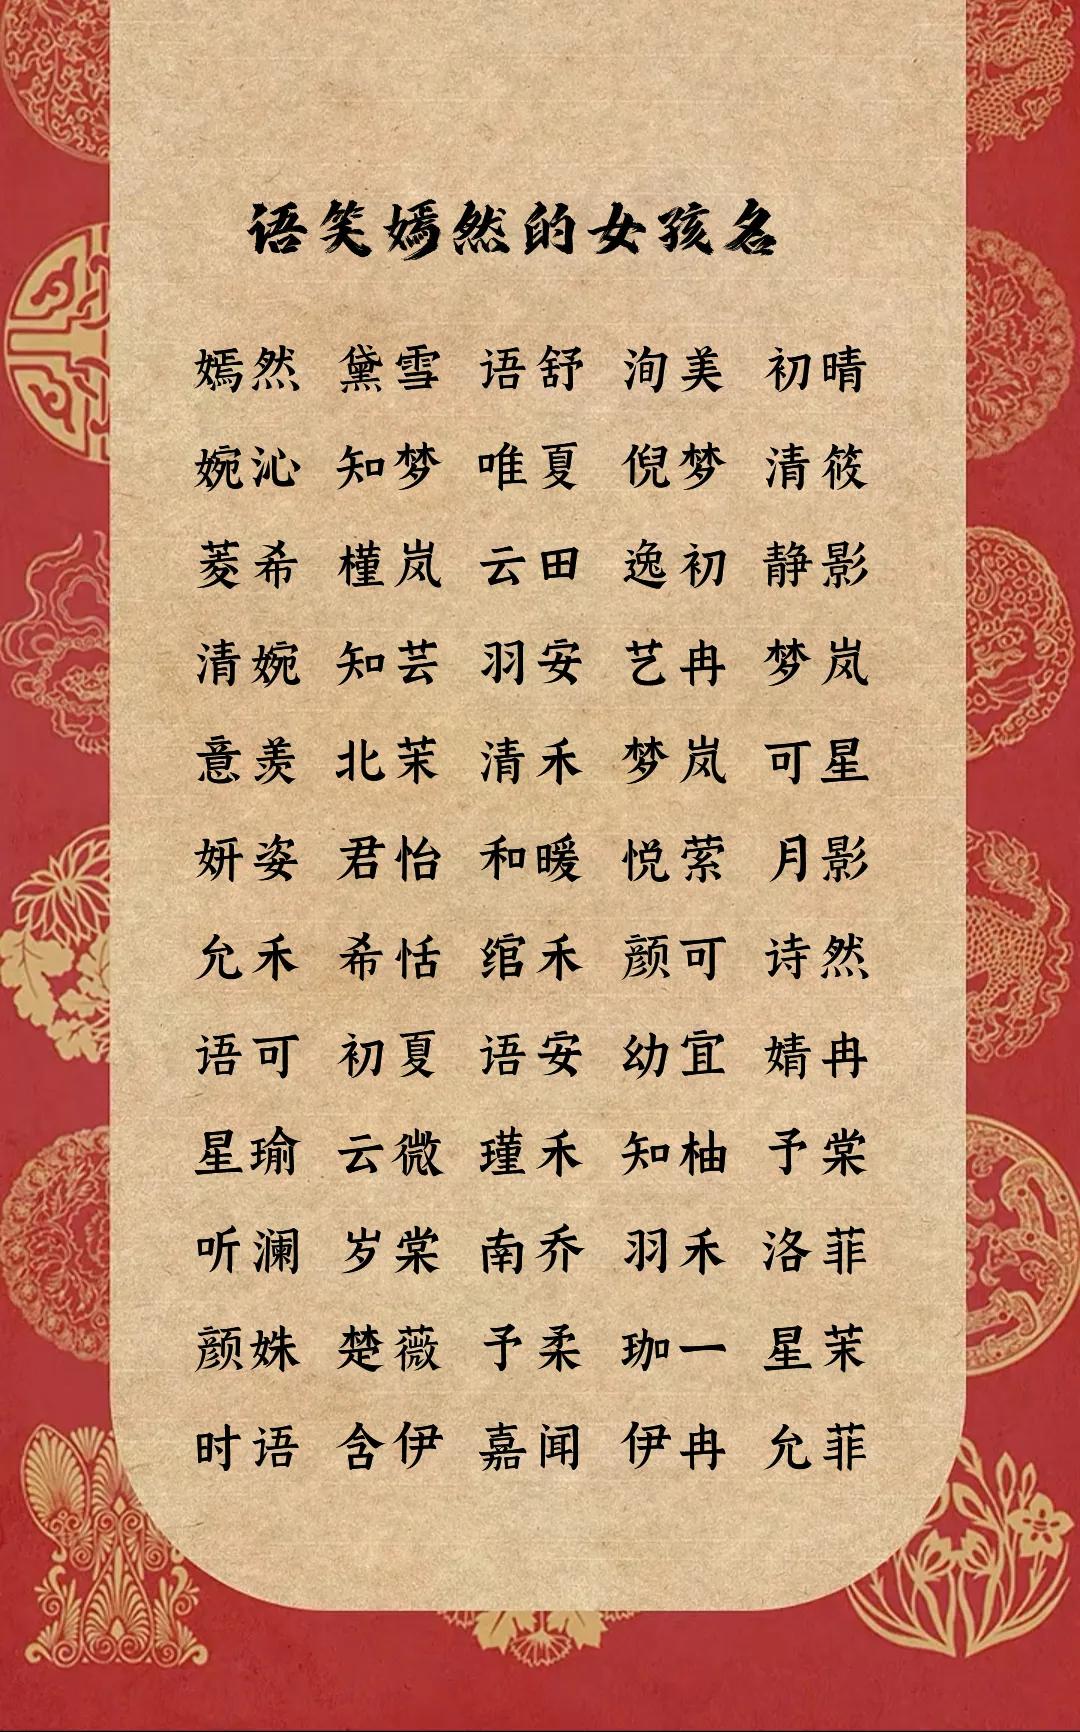 语笑嫣然的女孩名
嫣然 黛雪 语舒 洵美 初晴
婉沁 知梦 唯夏 倪梦 清筱
菱希 槿岚 云田 逸初 静影
清婉 知芸 羽安 艺冉 梦岚
意羡 北茉 清禾 梦岚 可星
妍姿 君怡 和暖 悦萦 月影
允禾 希恬 绾禾 颜可 诗然
语可 初夏 语安 幼宜 婧冉
星瑜 云微 瑾禾 知柚 予棠
听澜 岁棠 南乔 羽禾 洛菲
颜姝 楚薇 予柔 珈一 星茉
时语 含伊 嘉闻 伊冉 允菲